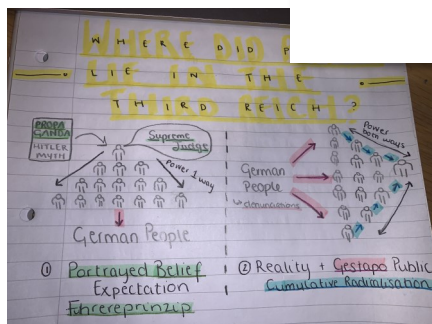 WHERE DID P
LIE IN THE
THIRD REICH?
PROPA
GANDA
HITLER
MYTH
Supreme
Judge
Power 1 way
German People
① Portrayed Belief
Expectation
Fuhrereprinzip
Power
both ways
German
People
↳ denunciations
② Reality + Gestapo Public
Cumulative Radicalisation